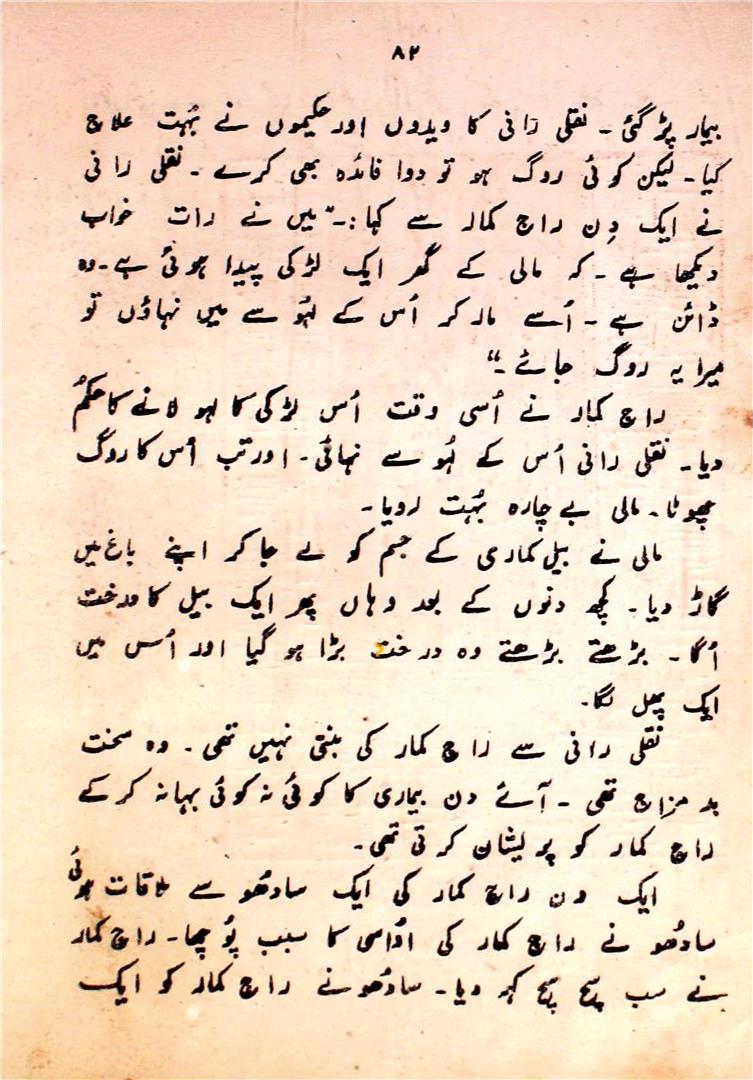 ۸۲
بیمار پڑ گئی ۔ نقلی رانی کا ویدوں اور حکیموں نے بہُت علاج
کیا ۔ لیکن کوئی روگ ہو تو دوا فائدہ بھی کرے ۔ نقلی رانی
نے ایک دِن راج کمار سے کہا :۔ "میں نے رات خواب
دیکھا ہے ۔ کہ مالی کے گھر ایک لڑکی پیدا ہوئی ہے ۔ وہ
ڈائن ہے ۔ اُسے مار کر اُس کے لہُو سے میں نہاؤں تو
میرا یہ روگ جائے ۔"
راج کمار نے اُسی وقت اُس لڑکی کا لہو لانے کا حکمُ
دیا ۔ نقلی رانی اُس کے لہُو سے نہائی ۔ اور تب اُس کا روگ
چھوٹا ۔ مالی بے چارہ بہُت رویا ۔
مالی نے بیل کماری کے جسم کو لے جا کر اپنے باغ میں
گاڑ دیا ۔ کچھ دنوں کے بعد وہاں پھر ایک بیل کا درخت
اُگا ۔ بڑھتے بڑھتے وہ درخت بڑا ہو گیا اور اُس میں
ایک پھل لگا ۔
نقلی رانی سے راج کمار کی بنتی نہیں تھی ۔ وہ سخت
بد مزاج تھی ۔ آئے دن بیماری کا کوئی نہ کوئی بہانہ کر کے
راج کمار کو پریشان کرتی تھی ۔
ایک دن راج کمار کی ایک سادُھو سے ملاقات ہوئی
سادُھو نے راج کمار کی اُداسی کا سبب پُوچھا ۔ راج کمار
نے سب سچ سچ کہہ دیا ۔ سادُھو نے راج کمار کو ایک